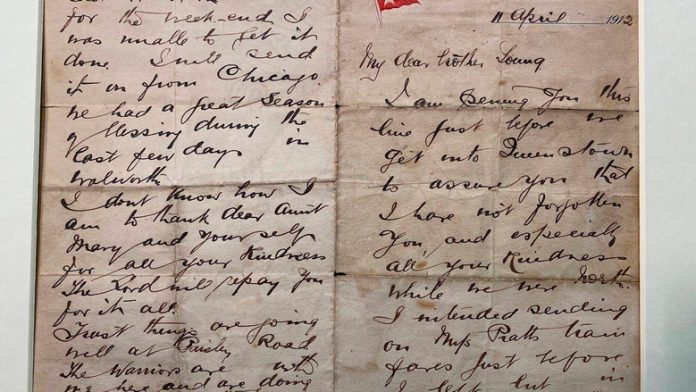 11 April 1912
My dear brother Young
I am penning You this
line just before we
get into Queenstown
to assure you that
I have not forgotten
You, and especially
all your Kindness
while we were North.
I intended sending
on Miss Pratts train
fares just before
I left but in
for the week-end I
was unable to get it
done. I will send
it on from Chicago.
We had a great Season
of blessing during the
last few days in
Walworth
I dont Know how I
am to thank dear Aunt
Mary and Yourself
for all your Kindness
The Lord will repay You
for it all.
Trust things are going
well at Paisley Road
The Warriors are with
me here and are doing